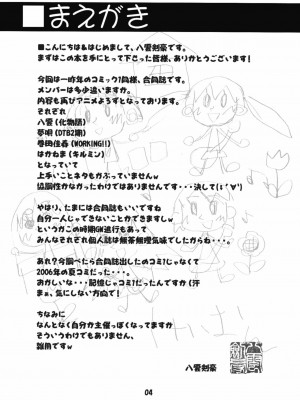 ■まえがき
■こんにちは&はじめまして、八雲剣豪です。
まずはこの本を手にとって下さった皆様、ありがとうございます!
今回は一昨年のコミック1同様、合同誌です。
メンバーは多少違いますが。
内容も再びアニメよろずとなっております。
それぞれ
八雲(化物語)
夢唄(DTB2期)
巻田佳春(WORKING!!)
はかねま(キルミン)
となっていて
上手いことネタもかぶっていませんw
協調性がなかったわけではありません・・・決して(;´∀`)
やはり、たまには合同誌もいいですね
自分一人じゃできないことができますしw
というかこの時期GW進行もあって
みんなそれぞれ個人誌は無茶無理気味でしたからね・・・。
あれ?今調べたら合同誌出したのコミ1じゃなくて
2006年の夏コミだった・・・。
おかしいな・・・記憶じゃコミ1だったんですか(汗
まぁ、気にしない方向で!
ちなみに
なんとなく自分が主催っぽくなってますか
そういうわけでもありません、
雑用ですw
八雲剣豪
04